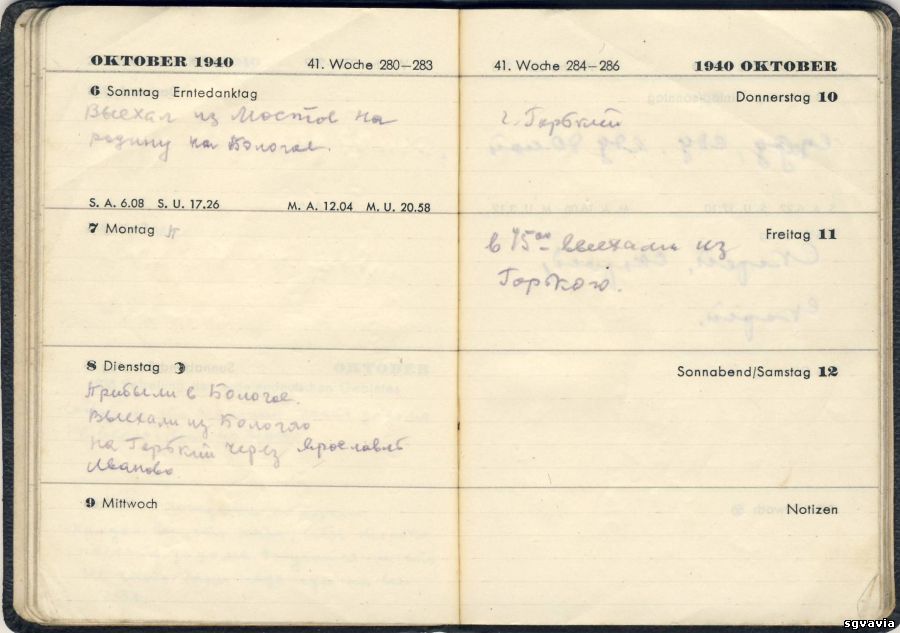 OKTOBER 1940
41. Woche 280–283
6 Sonntag Erntedanktag
Выехал из Мостов на
родину на Бологое.
S. A. 6.08 S. U. 17.26 M. A. 12.04 M. U. 20.58
7 Montag
8 Dienstag
Прибыли в Бологое.
Выехали из Бологло
на Горький через Ярославль
Иваново
9 Mittwoch
41. Woche 284–286
1940 OKTOBER
Donnerstag 10
г. Горький
Freitag 11
в 15⁰⁰ выехали из
Горького.
Sonnabend/Samstag 12
Notizen
sgvavia